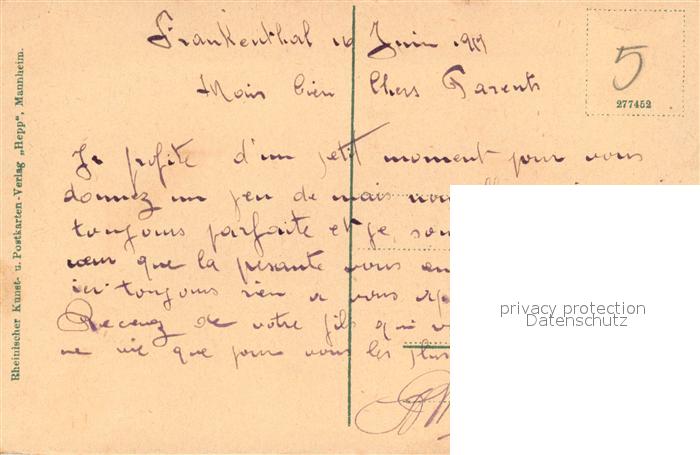 Frankenthal 10 Juin 1919
Mais bien Chers Parents
5
277452
Je profite d'un petit moment pour vous
donnez un peu de mais nou
toujours parfaite et je sou
cœur que la présante vous en
ici toujours rien a vous ap
Recevez de votre fils qui v
ne vie que pour vous les plus
Rheinischer Kunst- u. Postkarten-Verlag „Hepp", Mannheim.
privacy protection
Datenschutz